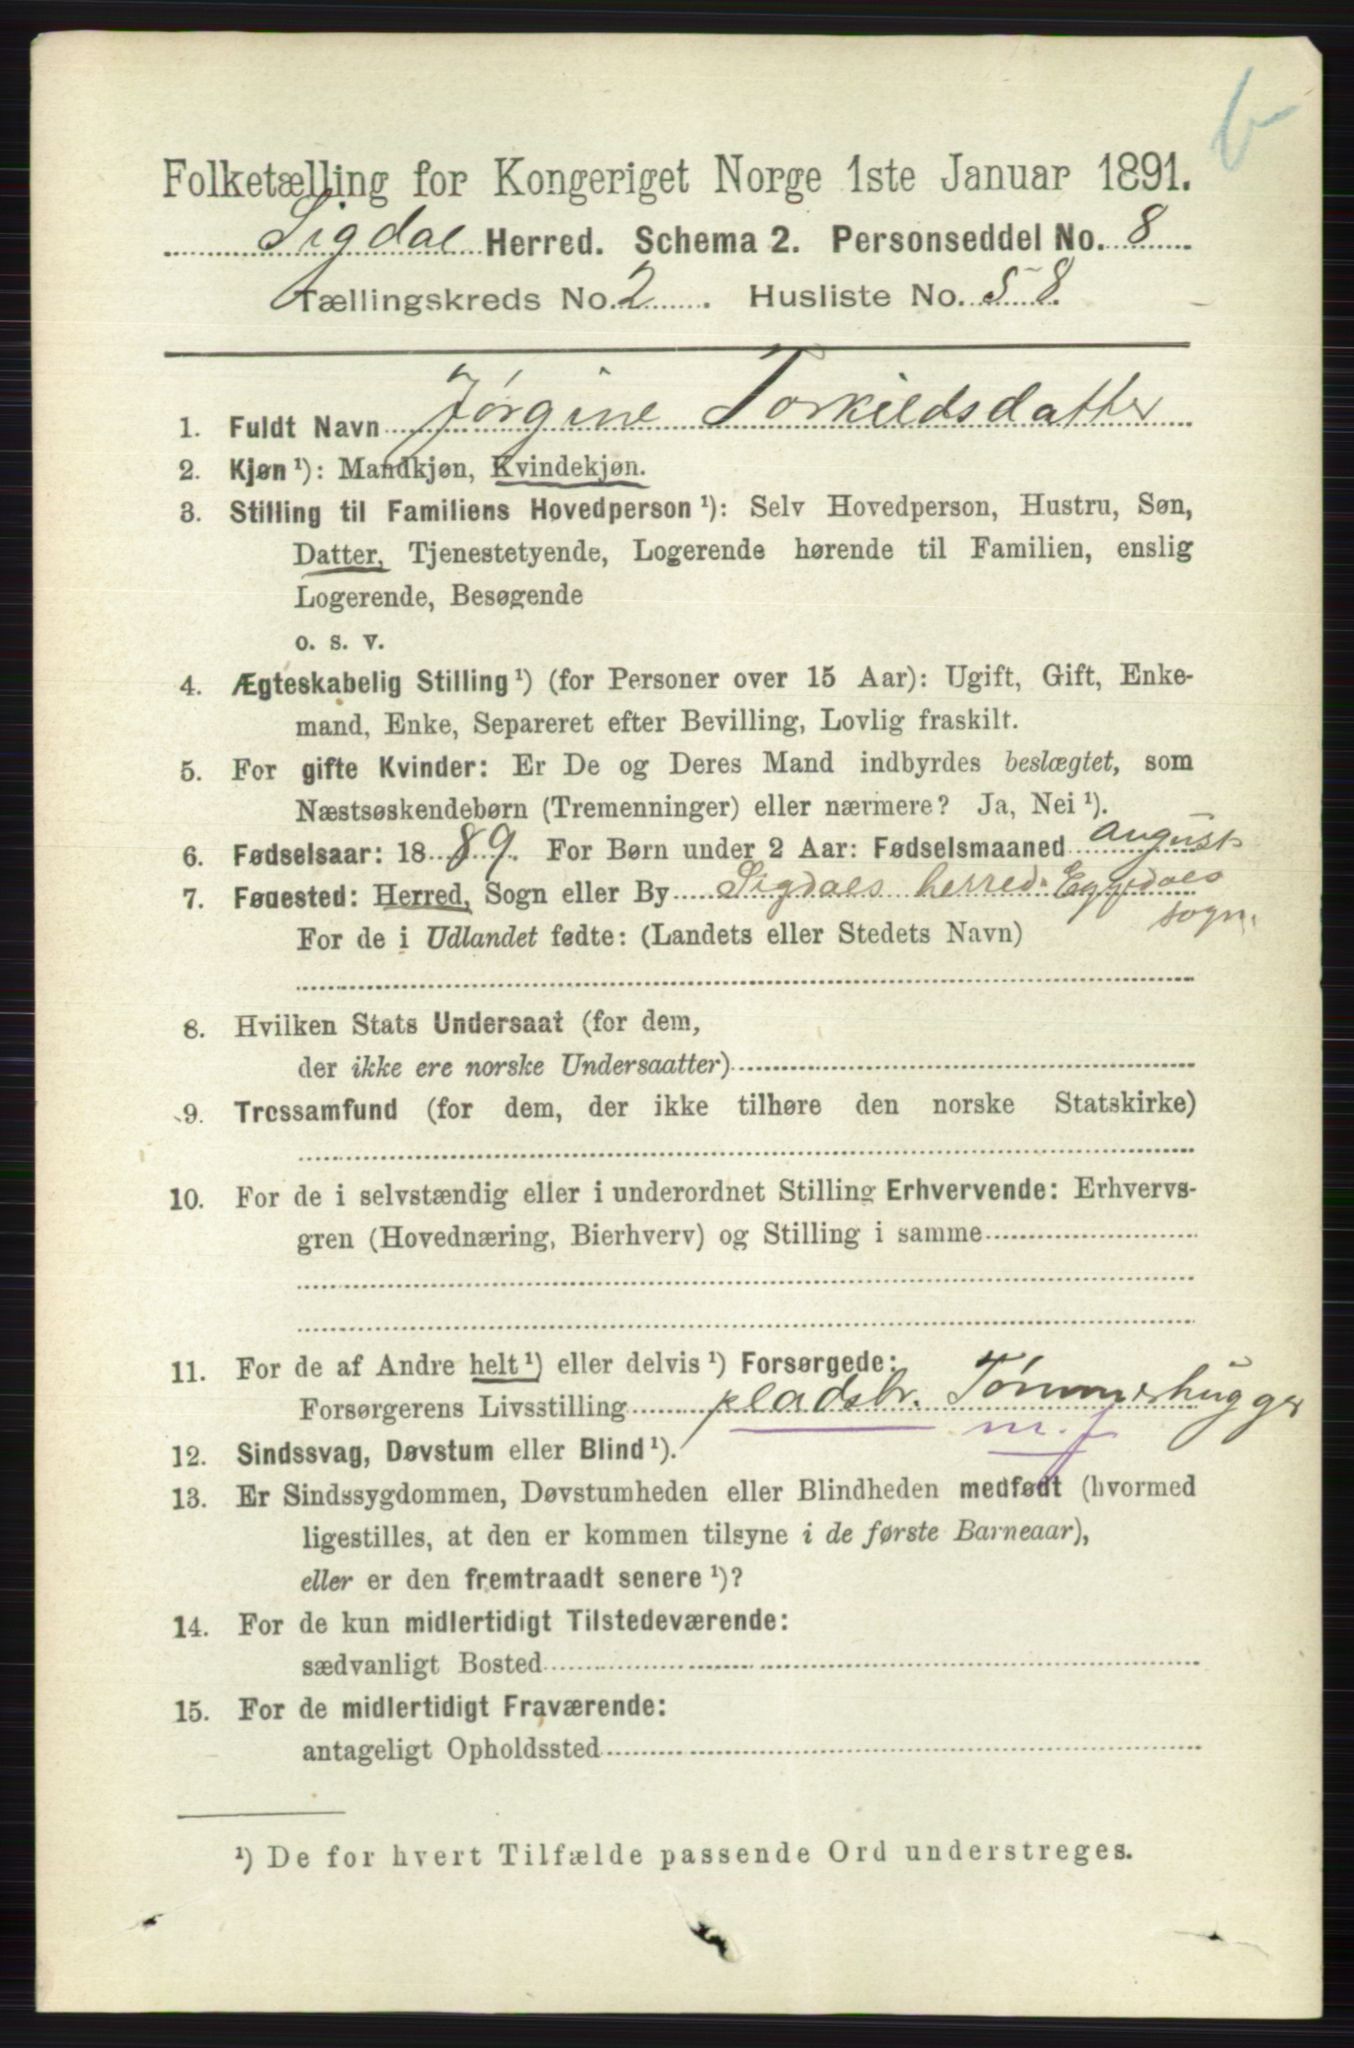 b
Folketælling for Kongeriget Norge 1ste Januar 1891.
Sigdal Herred. Schema 2. Personseddel No. 8
Tællingskreds No. 2. Husliste No. 58
1. Fuldt Navn Jørgine Torkildsdatter
2. Kjøn ¹): Mandkjøn, Kvindekjøn.
3. Stilling til Familiens Hovedperson ¹): Selv Hovedperson, Hustru, Søn,
Datter, Tjenestetyende, Logerende hørende til Familien, enslig
Logerende, Besøgende
o. s. v.
4. Ægteskabelig Stilling ¹) (for Personer over 15 Aar): Ugift, Gift, Enke-
mand, Enke, Separeret efter Bevilling, Lovlig fraskilt.
5. For gifte Kvinder: Er De og Deres Mand indbyrdes beslægtet, som
Næstsøskendebørn (Tremenninger) eller nærmere? Ja, Nei ¹).
6. Fødselsaar: 1889. For Børn under 2 Aar: Fødselsmaaned august
7. Føuested: Herred, Sogn eller By Sigdals herred. Eggedals
sogn.
For de i Udlandet fødte: (Landets eller Stedets Navn)
8. Hvilken Stats Undersaat (for dem,
der ikke ere norske Undersaatter)
9. Trossamfund (for dem, der ikke tilhøre den norske Statskirke)
10. For de i selvstændig eller i underordnet Stilling Erhvervende: Erhvervs-
gren (Hovednæring, Bierhverv) og Stilling i samme
11. For de af Andre helt ¹) eller delvis ¹) Forsørgede:
Forsørgerens Livsstilling pladsbr. Tømmerhugger
m. f
12. Sindssvag, Døvstum eller Blind ¹).
13. Er Sindssygdommen, Døvstumheden eller Blindheden medfødt (hvormed
ligestilles, at den er kommen tilsyne i de første Barneaar),
eller er den fremtraadt senere ¹)?
14. For de kun midlertidigt Tilstedeværende:
sædvanligt Bosted
15. For de midlertidigt Fraværende:
antageligt Opholdssted
¹) De for hvert Tilfælde passende Ord understreges.